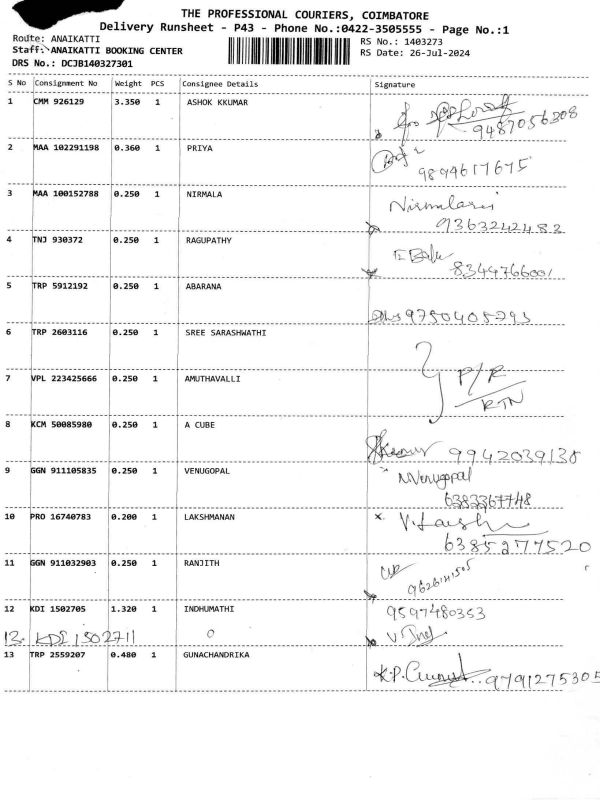 THE PROFESSIONAL COURIERS, COIMBATORE
Delivery Runsheet - P43 - Phone No.:0422-3505555 - Page No.:1
Route: ANAIKATTI
RS No.: 1403273
Staff: ANAIKATTI BOOKING CENTER
RS Date: 26-Jul-2024
DRS No.: DCJB140327301
S No Consignment No Weight PCS Consignee Details Signature
1 CMM 926129 3.350 1 ASHOK KKUMAR
9487056308
2 MAA 102291198 0.360 1 PRIYA
9894617675
3 MAA 100152788 0.250 1 NIRMALA
9363242483
4 TNJ 930372 0.250 1 RAGUPATHY
8344766001
5 TRP 5912192 0.250 1 ABARANA
9750405293
6 TRP 2603116 0.250 1 SREE SARASHWATHI
7 VPL 223425666 0.250 1 AMUTHAVALLI
P/R
RTN
8 KCM 50085980 0.250 1 A CUBE
9942039138
9 GGN 911105835 0.250 1 VENUGOPAL
N.Venugopal
6383367748
10 PRO 16740783 0.200 1 LAKSHMANAN
6385277520
11 GGN 911032903 0.250 1 RANJITH
9626141505
12 KDI 1502705 1.320 1 INDHUMATHI
9597480353
13. KDI 1502711
13 TRP 2559207 0.480 1 GUNACHANDRIKA
9791275305